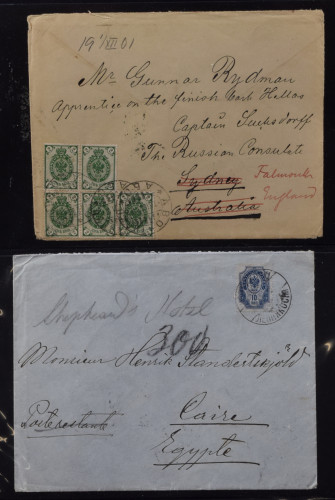 19 9/XII 01
Mr Gunnar Rydman
Apprentice on the finish bark Hellas
Captain Sucksdorff
The Russian Consulate
Sydney
Australia
Falmouth
England
Shepheard's Hotel
300
Monsieur Henrik Standertskjöld
Poste restante
Caire
Egypte
10